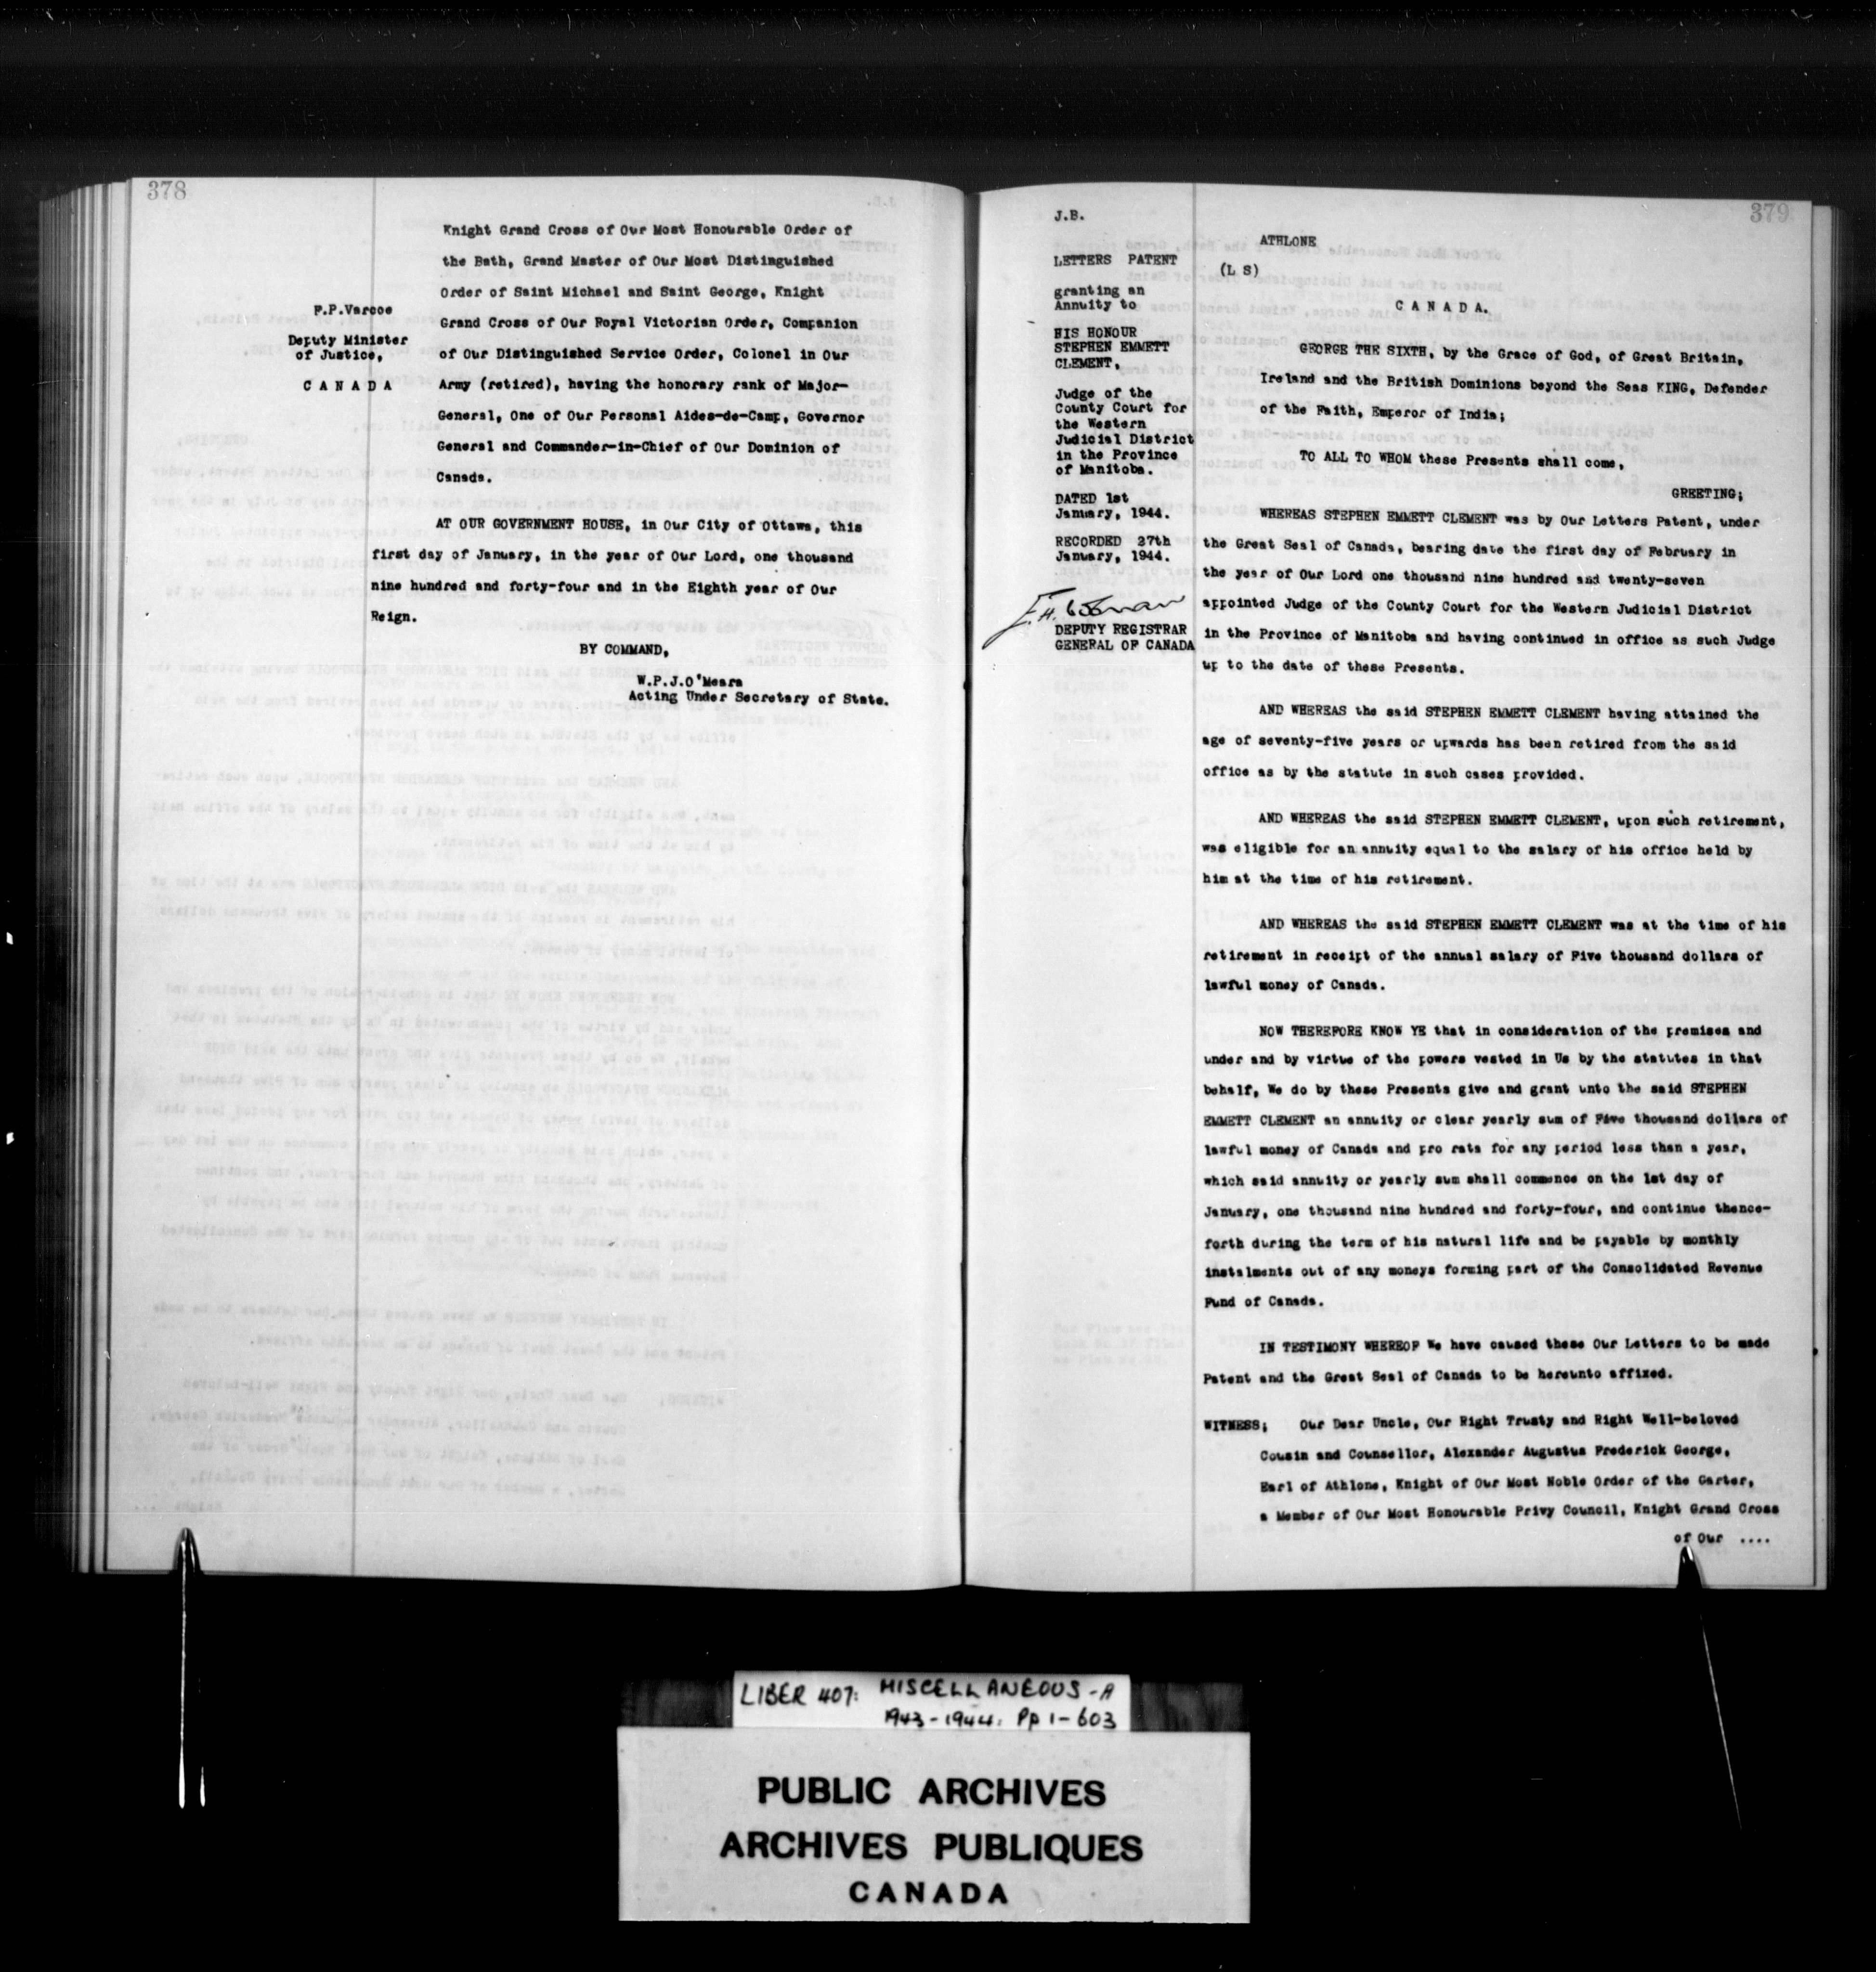 378
Knight Grand Cross of Our Most Honourable Order of
the Bath, Grand Master of Our Most Distinguished
Order of Saint Michael and Saint George, Knight
Grand Cross of Our Royal Victorian Order, Companion
of Our Distinguished Service Order, Colonel in Our
Army (retired), having the honorary rank of Major-
General, One of Our Personal Aides-de-Camp, Governor
General and Commander-in-Chief of Our Dominion of
Canada.
F.P.Varcoe
Deputy Minister
of Justice,
CANADA
AT OUR GOVERNMENT HOUSE, in Our City of Ottawa, this
first day of January, in the year of Our Lord, one thousand
nine hundred and forty-four and in the Eighth year of Our
Reign.
BY COMMAND,
W.P.J.O'Meara
Acting Under Secretary of State.
379
J.B.
LETTERS PATENT
granting an
Annuity to
HIS HONOUR
STEPHEN EMMETT
CLEMENT,
Judge of the
County Court for
the Western
Judicial District
in the Province
of Manitoba.
DATED 1st
January, 1944.
RECORDED 27th
January, 1944.
DEPUTY REGISTRAR
GENERAL OF CANADA
ATHLONE
(L S)
CANADA.
GEORGE THE SIXTH, by the Grace of God, of Great Britain,
Ireland and the British Dominions beyond the Seas KING, Defender
of the Faith, Emperor of India;
TO ALL TO WHOM these Presents shall come,
GREETING;
WHEREAS STEPHEN EMMETT CLEMENT was by Our Letters Patent, under
the Great Seal of Canada, bearing date the first day of February in
the year of Our Lord one thousand nine hundred and twenty-seven
appointed Judge of the County Court for the Western Judicial District
in the Province of Manitoba and having continued in office as such Judge
up to the date of these Presents.
AND WHEREAS the said STEPHEN EMMETT CLEMENT having attained the
age of seventy-five years or upwards has been retired from the said
office as by the statute in such cases provided.
AND WHEREAS the said STEPHEN EMMETT CLEMENT, upon such retirement,
was eligible for an annuity equal to the salary of his office held by
him at the time of his retirement.
AND WHEREAS the said STEPHEN EMMETT CLEMENT was at the time of his
retirement in receipt of the annual salary of Five thousand dollars of
lawful money of Canada.
NOW THEREFORE KNOW YE that in consideration of the premises and
under and by virtue of the powers vested in Us by the statutes in that
behalf, We do by these Presents give and grant unto the said STEPHEN
EMMETT CLEMENT an annuity or clear yearly sum of Five thousand dollars of
lawful money of Canada and pro rata for any period less than a year,
which said annuity or yearly sum shall commence on the 1st day of
January, one thousand nine hundred and forty-four, and continue thence-
forth during the term of his natural life and be payable by monthly
instalments out of any moneys forming part of the Consolidated Revenue
Fund of Canada.
IN TESTIMONY WHEREOF We have caused these Our Letters to be made
Patent and the Great Seal of Canada to be hereunto affixed.
WITNESS; Our Dear Uncle, Our Right Trusty and Right Well-beloved
Cousin and Counsellor, Alexander Augustus Frederick George,
Earl of Athlone, Knight of Our Most Noble Order of the Garter,
a Member of Our Most Honourable Privy Council, Knight Grand Cross
of Our ....
LIBER 407: MISCELLANEOUS -A
1943-1944. Pp 1-603
PUBLIC ARCHIVES
ARCHIVES PUBLIQUES
CANADA